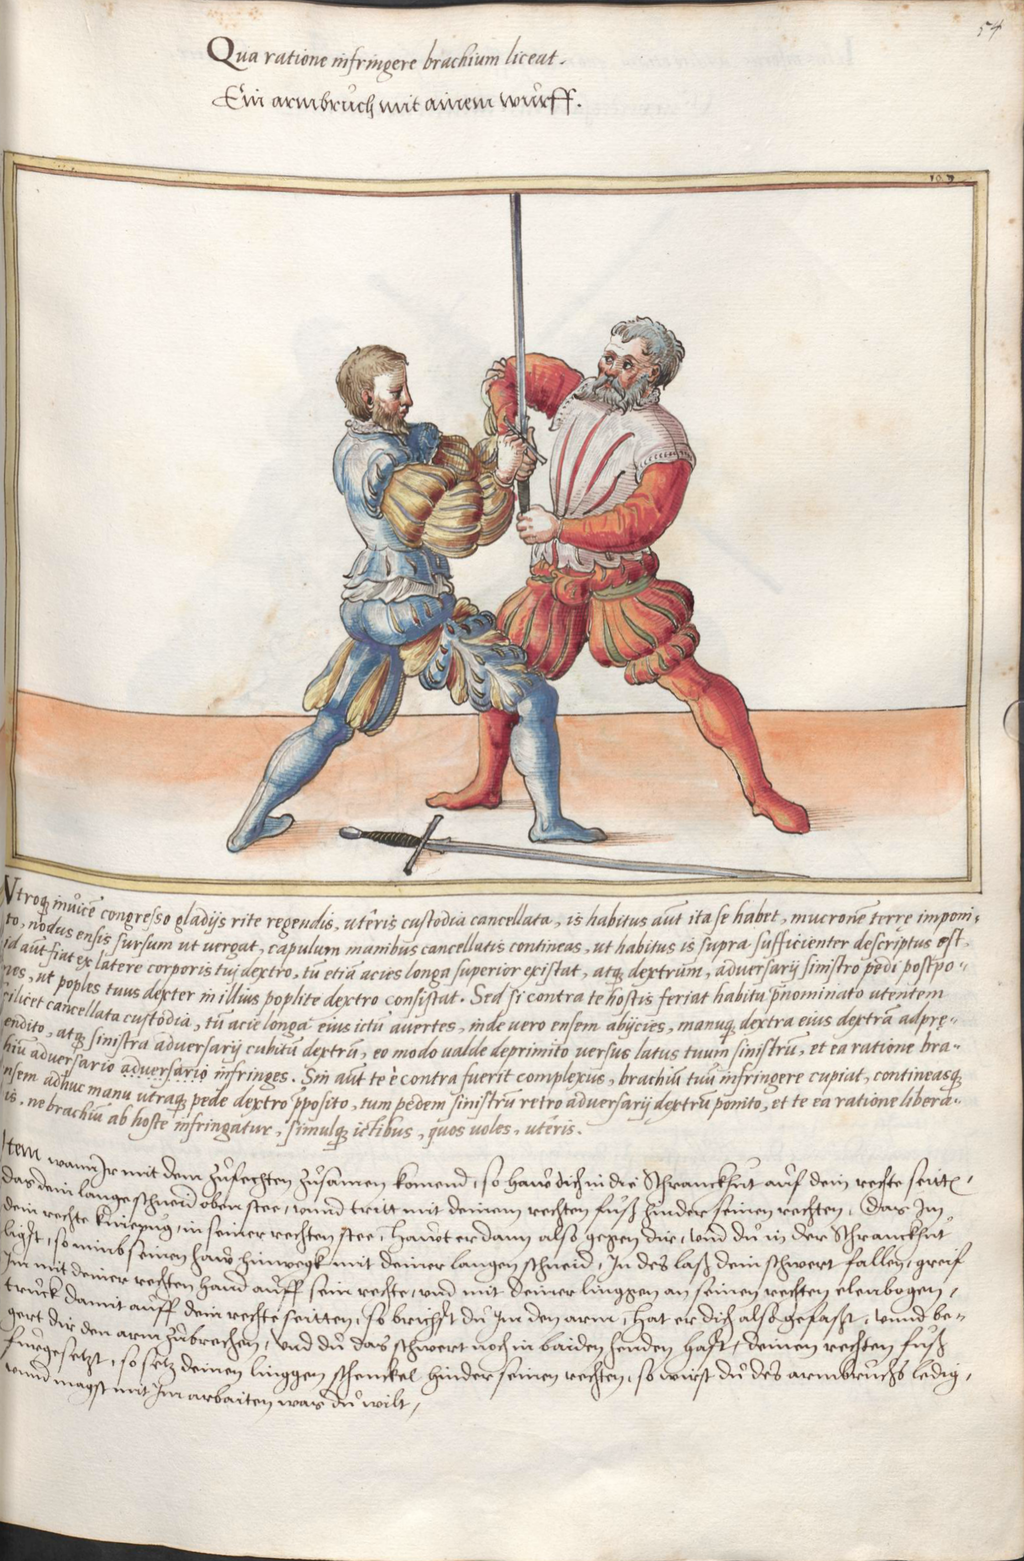 54
Qua ratione infringere brachium liceat.
Ein armbruch mit ainem wurff.
Vtroq; inuicē congresso gladijs rite regendis, utêris custodia cancellata, is habitus aūt ita se habet, mucronē terrę imponi,
to, nodus ensis sursum ut uergat, capulum manibus cancellatis contineas, ut habitus is supra sufficienter descriptus est,
id aūt fiat ex latere corporis tuj dextro, tū etiā acies longa superior existat, atq; dextrum, adversarij sinistro pedi postpo-
nes, ut poples tuus dexter in illius poplite dextro consistat. Sed si contra te hostis feriat habitu p̄nominato utentem
scilicet cancellata custodia, tū acie longa eius ictū auertes, inde uero ensem abijcies, manuq; dextra eius dextrā adprę-
endito, atq; sinistra adversarij cubitū dextrū, eo modo ualde deprimito versus latus tuum sinistrū, et ea ratione bra-
hiū adversario adversario infringes. Sin aūt te è contra fuerit complexus, brachiū tuū infringere cupiat, contineasq;
nsem adhuc manu utraq; pede dextro p̱posito, tum pedem sinistrū retro adversarij dextrū ponito, et te ea ratione libera-
is. ne brachiū ab hoste infringatur, simulq; ictibus, quos uoles, utêris.
Item wann Jr mit dem zufechten zusamen komend, so haw dich in die Schranckhut auf dein rechte seitte,
das dein lange schneid oben stee, vnnd tritt mit deinem rechten fuß hinder seinen rechten, Das Jm
dein rechte kniepug, in seiner rechten stee, Hawt er dann also gegen dir, vnd du in der Schranckhut
ligst, so nimb seinen haw hinwegk mit deiner langen schneid, In des laß dein schwert fallen, greif
Jm mit deiner rechten hand auff sein rechte, vnd mit deiner linggen an seinen rechten elenbogen,
truck damit auff dein rechte seitten, so brichst du Jm den arm, Hat er dich also gefaßt, vnnd be-
gert dir den arm zubrechen, vnd du das schwert noch in baiden henden hast, deinen rechten fuß
furgesetzt, so setz deinen linggen schenckel hinder seinen rechten, so wirst du des armbruchs ledig,
vnnd magst mit Jm arbaiten was du wilt,